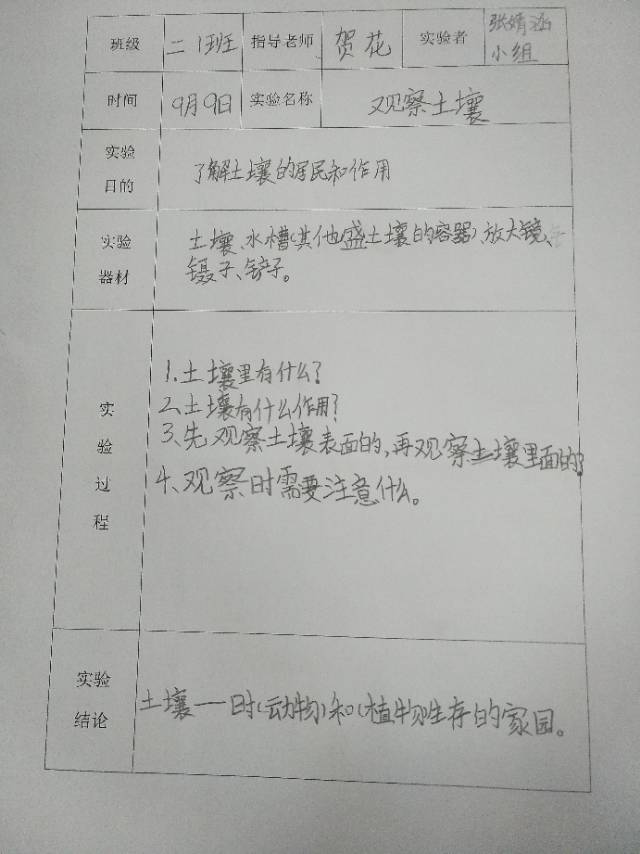 班级 二1班 指导老师 贺花 实验者 张婧涵
小组
时间 9月9日 实验名称 观察土壤
实验
目的
了解土壤的居民和作用
实验
器材
土壤、水槽(其他盛土壤的容器)、放大镜、
镊子、铲子。
实
验
过
程
1.土壤里有什么?
2.土壤有什么作用?
3.先观察土壤表面的,再观察土壤里面的?
4、观察时需要注意什么。
实验
结论
土壤——时(动物)和(植物)生存的家园。